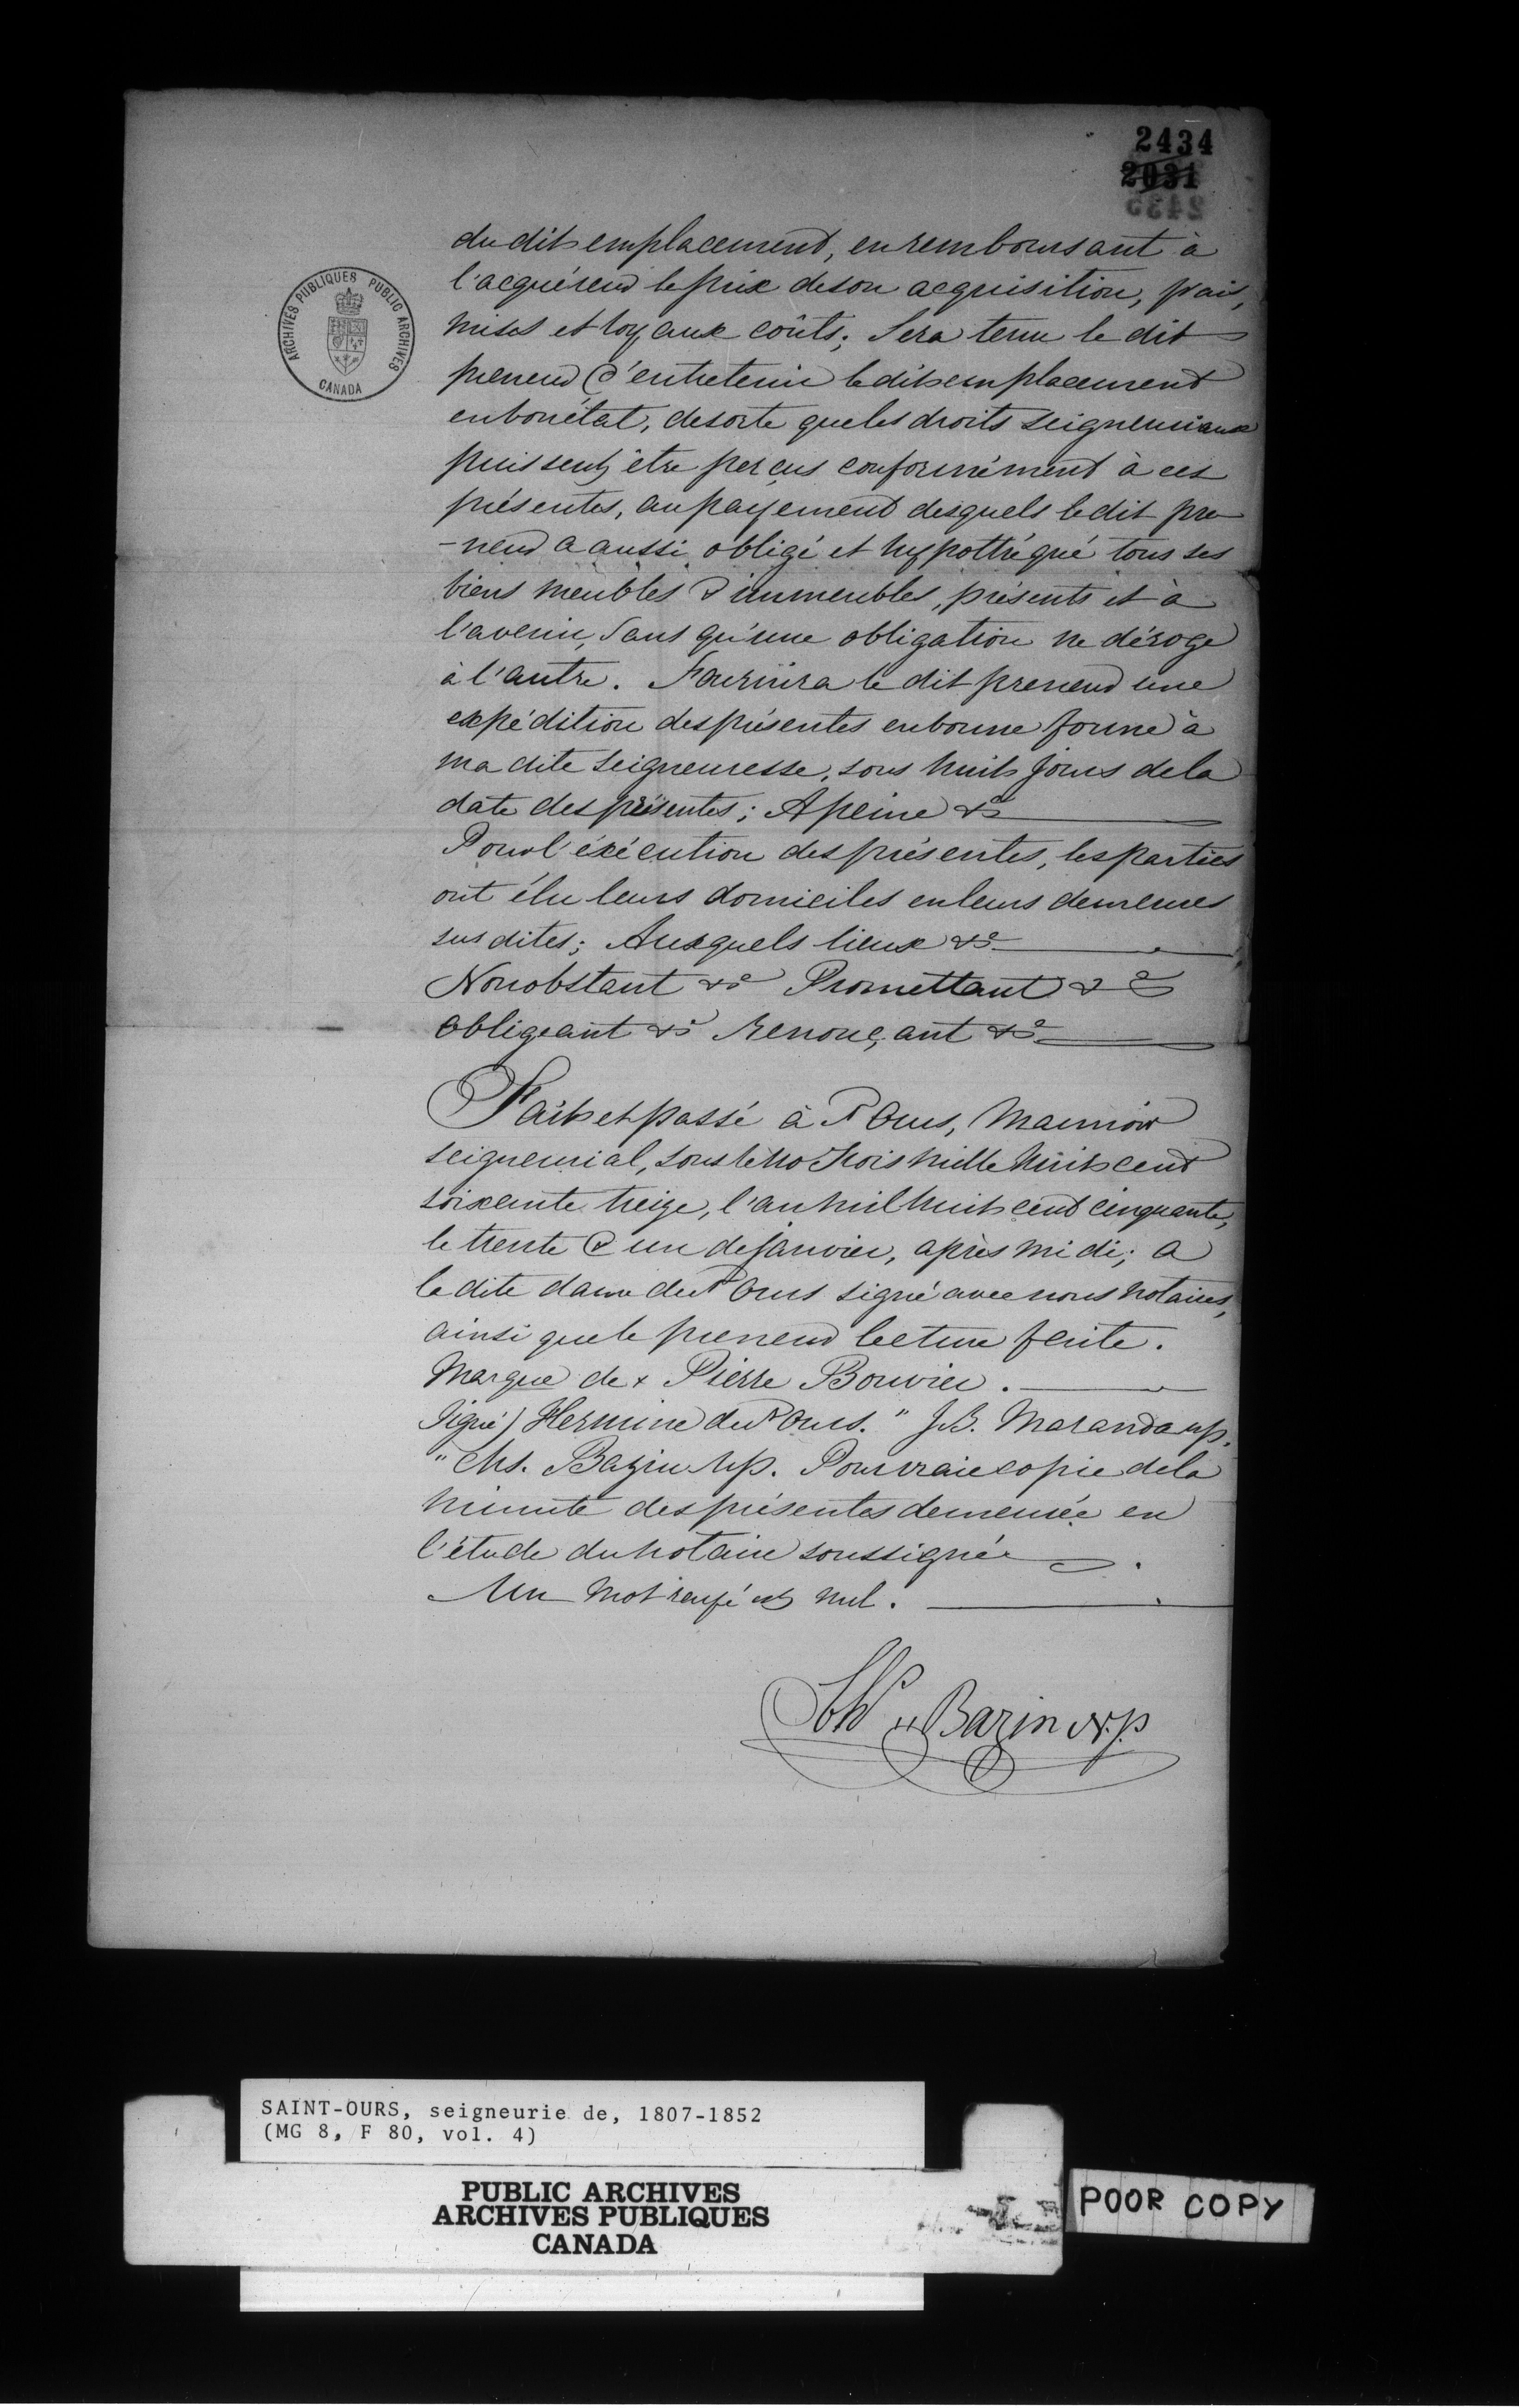 2434
2031
2435
ARCHIVES PUBLIQUES PUBLIC ARCHIVES
CANADA
du dit emplacement, en remboursant à
l'acquéreur le prix de son acquisition, frais,
mises et loyaux coûts; Sera tenu le dit
preneur d'entretenir le dit emplacement
en bon état, de sorte que les droits seigneuriaux
puissent être perçus conformément à ces
présentes, au payement desquels le dit pre
-neur a aussi obligé et hypothéqué tous ses
biens meubles & immeubles, présents et à
l'avenir, sans qu'une obligation ne déroge
à l'autre. Fournira le dit preneur une
expédition des présentes en bonne forme à
ma dite seigneuresse, sous huit jours de la
date des présentes; A peine &c
Pour l'éxécution des présentes, les parties
ont élu leurs domiciles en leurs demeures
sus dites; Auxquels lieux &c
Nonobstant &c Promettant &c
Obligeant &c Renonçant &c
Fait et passé à St Ours, Mannoir
seigneurial, sous le No trois mille huit cent
soixante treize, l'an mil huit cent cinquante,
le trente & un de janvier, après midi; a
la dite dame de St Ours signé avec nous notaires,
ainsi que le preneur lecture faite.
Marque de x Pierre Bouvier.
Signé) Hermine de St Ours. " J.B. Maranda np.
" Chs. Bazin Np. Pour vraie copie de la
minute des présentes demeurée en
l'étude du notaire soussigné
Un mot rayé est nul.
Chs Bazin N.p
SAINT-OURS, seigneurie de, 1807-1852
(MG 8, F 80, vol. 4)
PUBLIC ARCHIVES
ARCHIVES PUBLIQUES
CANADA
POOR COPY